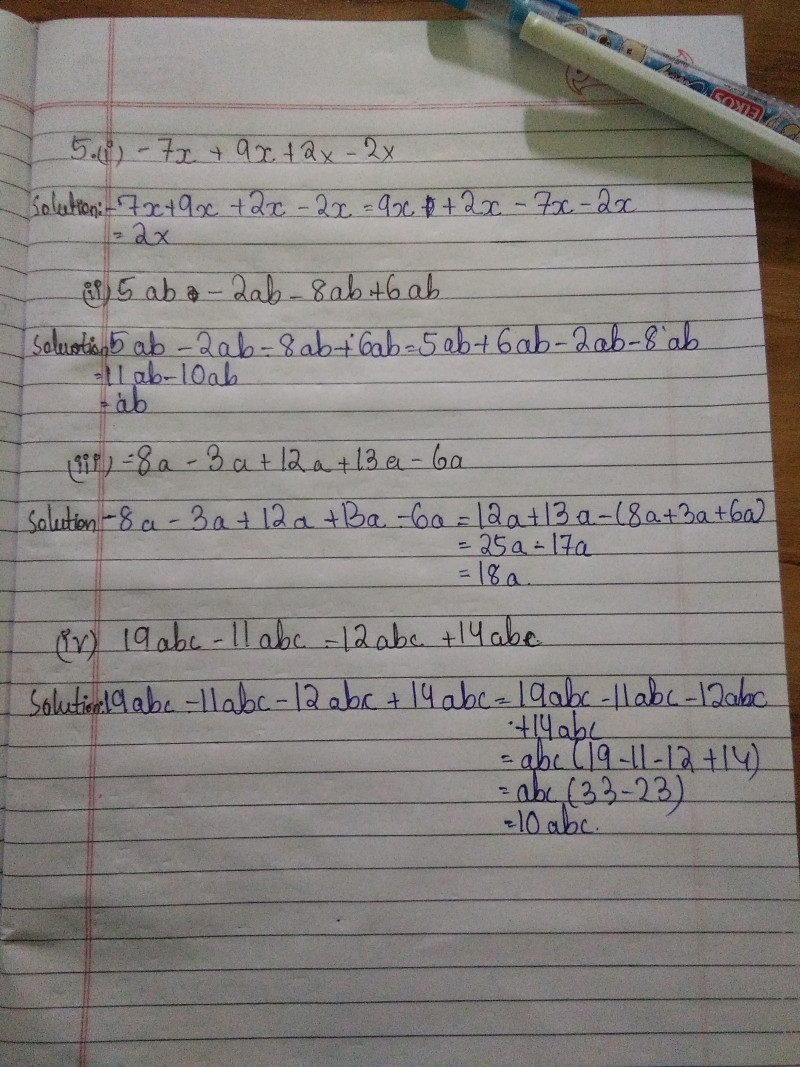 ELKOS
5.(i) -7x + 9x + 2x - 2x
Solution:- -7x+9x +2x - 2x = 9x + 2x - 7x - 2x
= 2x
(ii) 5ab - 2ab - 8ab + 6ab
Soluotion 5ab - 2ab - 8ab + 6ab = 5ab + 6ab - 2ab - 8ab
= 11ab - 10ab
= ab
(iii) -8a - 3a + 12a + 13a - 6a
Solution -8a - 3a + 12a + 13a - 6a = 12a + 13a - (8a + 3a + 6a)
= 25a - 17a
= 18a.
(iv) 19abc - 11abc - 12abc + 14abc
Solution: 19abc - 11abc - 12abc + 14abc = 19abc - 11abc - 12abc
+ 14abc
= abc (19 - 11 - 12 + 14)
= abc (33 - 23)
= 10abc.